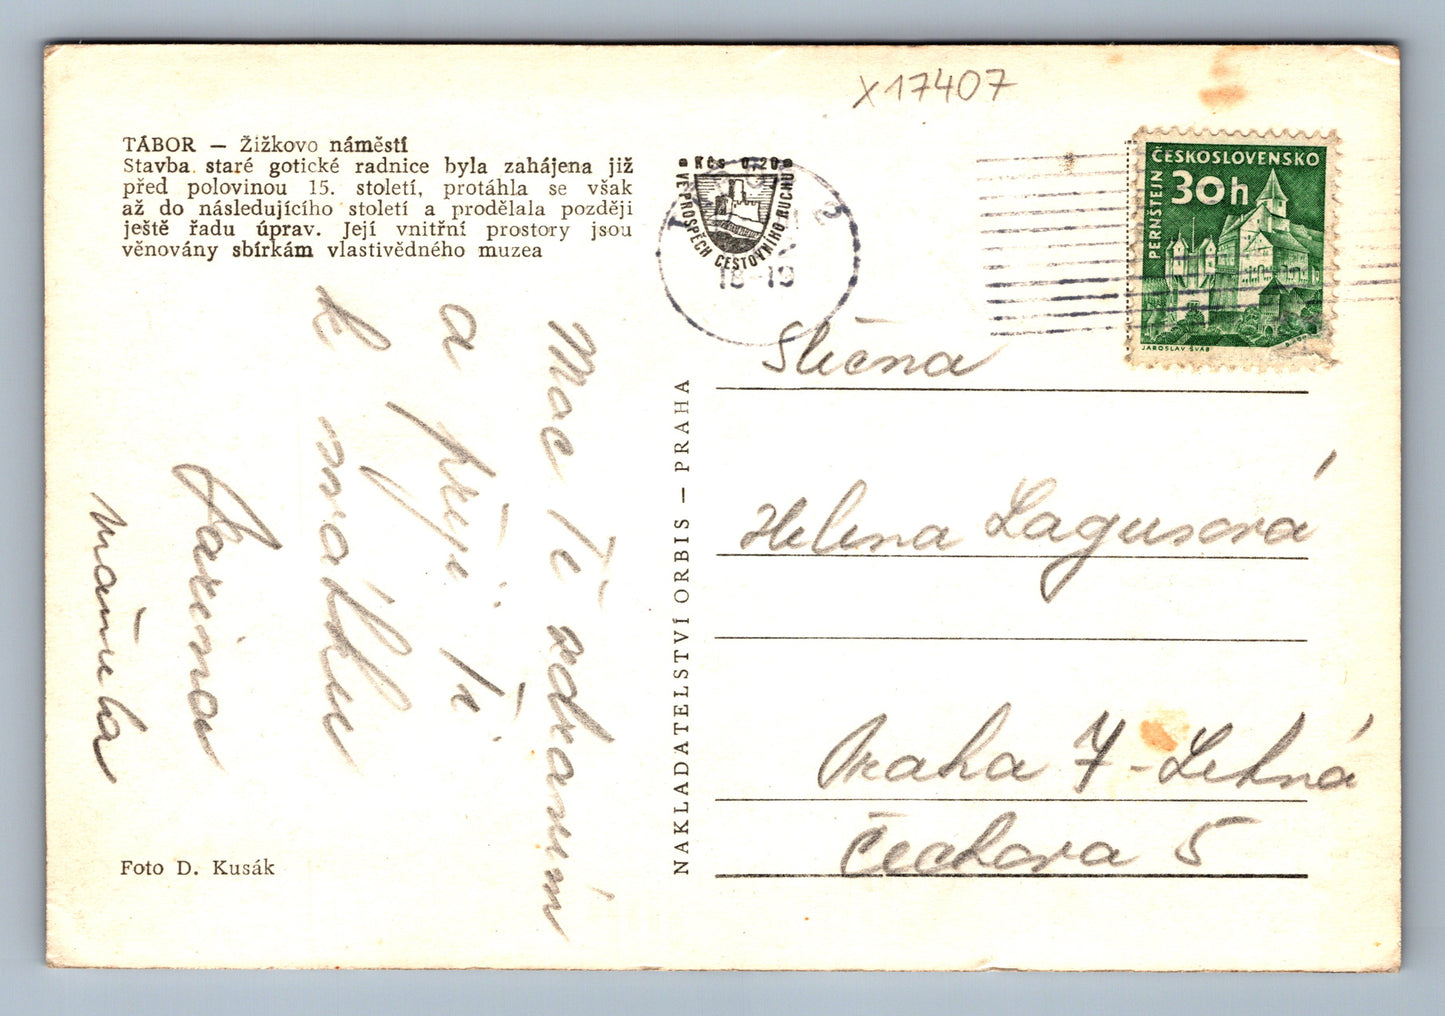 x17407
TÁBOR — Žižkovo náměstí
Stavba staré gotické radnice byla zahájena již
před polovinou 15. století, protáhla se však
až do následujícího století a prodělala později
ještě řadu úprav. Její vnitřní prostory jsou
věnovány sbírkám vlastivědného muzea
Kčs 0,20
VE PROSPĚCH CESTOVNÍHO RUCHU
18-19
ČESKOSLOVENSKO
30h
PERNŠTEJN
JAROSLAV ŠVÁB
Moc Tě zdravím
a přeji Ti
k svátku
mamka
NAKLADATELSTVÍ ORBIS — PRAHA
Slečna
Helena Lagusová
Praha 7 - Letná
Čechova 5
Foto D. Kusák